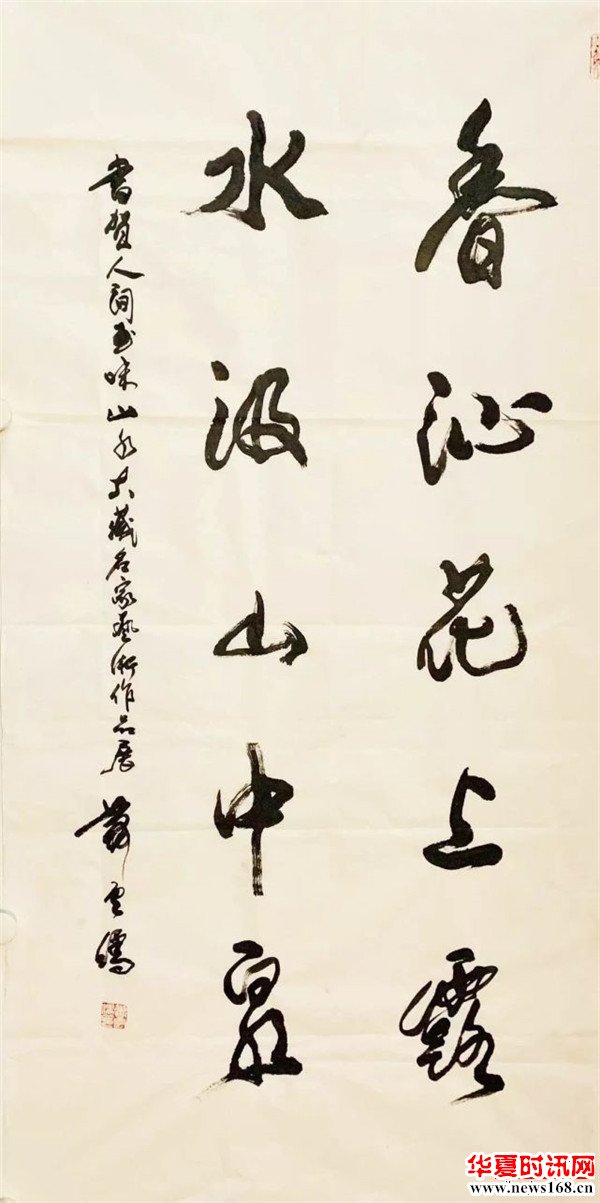 香沁花上露
水汲山中泉
书贺人间至味山水大藏名家艺术作品展
华夏时讯网
www.news168.cn